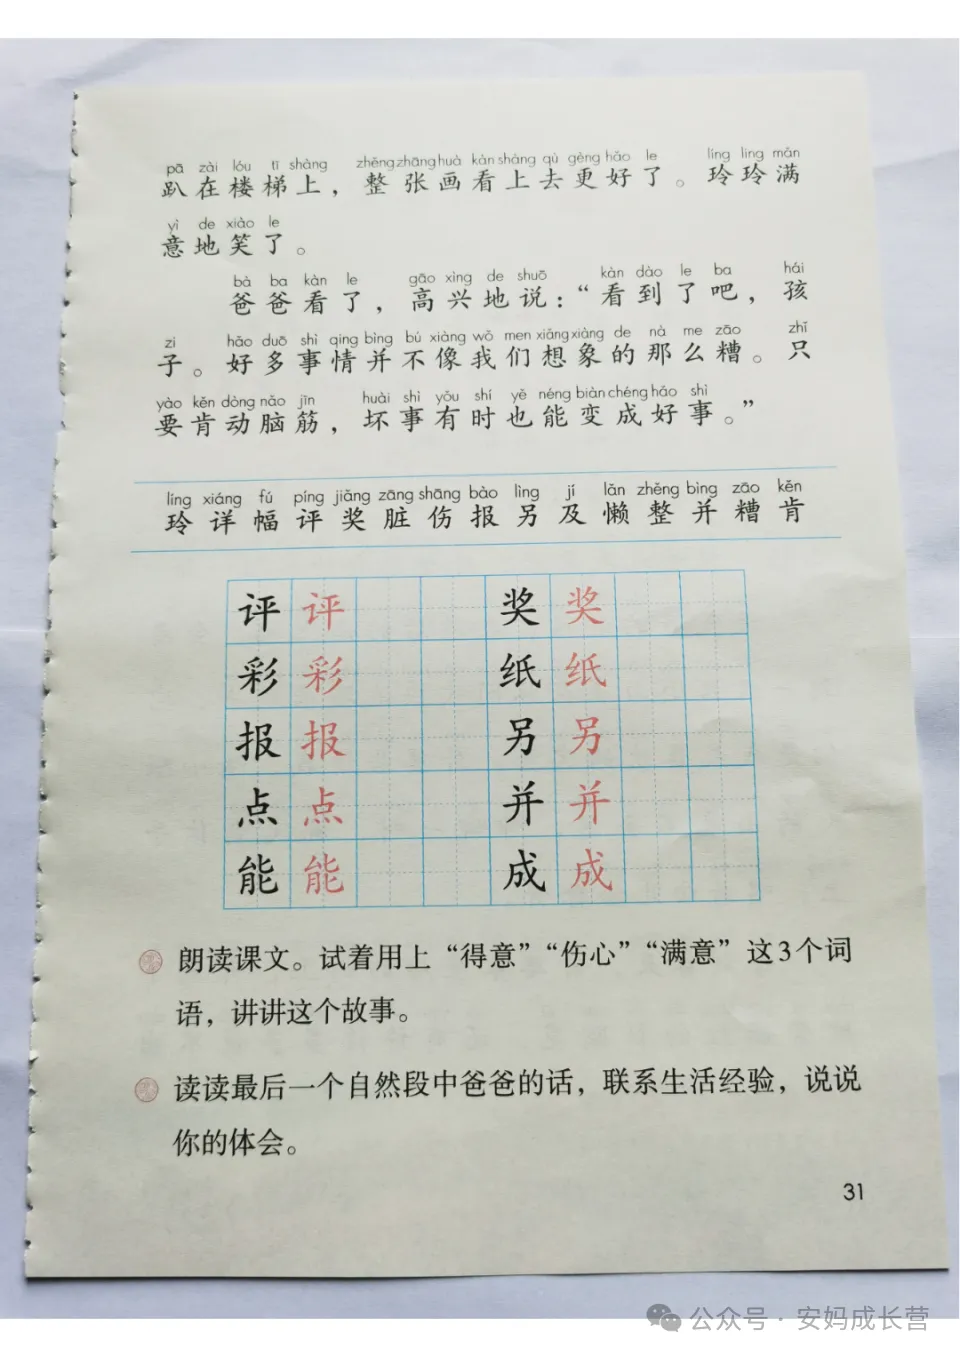 pā zài lóu tī shàng zhěng zhāng huà kàn shàng qù gèng hǎo le líng ling mǎn
趴在楼梯上，整张画看上去更好了。玲玲满
yì de xiào le
意地笑了。
bà ba kàn le gāo xìng de shuō kàn dào le ba hái
爸爸看了，高兴地说：“看到了吧，孩
zi hǎo duō shì qing bìng bú xiàng wǒ men xiǎng xiàng de nà me zāo zhǐ
子。好多事情并不像我们想象的那么糟。只
yào kěn dòng nǎo jīn huài shì yǒu shí yě néng biàn chéng hǎo shì
要肯动脑筋，坏事有时也能变成好事。”
líng xiáng fú píng jiǎng zāng shāng bào lìng jí lǎn zhěng bìng zāo kěn
玲详幅评奖脏伤报另及懒整并糟肯
评评 奖奖
彩彩 纸纸
报报 另另
点点 并并
能能 成成
朗读课文。试着用上“得意”“伤心”“满意”这3个词
语，讲讲这个故事。
读读最后一个自然段中爸爸的话，联系生活经验，说说
你的体会。
31
公众号·安妈成长营